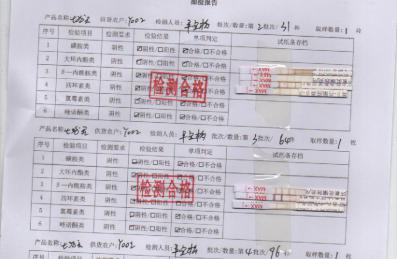 抽检报告
产品名称: 供货农户: Y002 检测人员: 批次/数量: 第2批次/31件 取样数量: 1
序号 检验项目 检测要求 检验结果 单项判定 试纸条存档
1 磺胺类 阴性 ☑阴性/□阳性 ☑合格/□不合格
2 大环内酯类 阴性 ☑阴性/□阳性 ☑合格/□不合格
3 β—内酰胺类 阴性 ☑阴性/□阳性 ☑合格/□不合格
4 四环素类 阴性 ☑合格/□不合格
5 氯霉素类 阴性 ☑合格/□不合格
6 喹诺酮类 阴性 ☑阴性/□阳性 ☑合格/□不合格
检测合格
MAX
产品名称: 供货农户: Y002 检测人员: 批次/数量: 第3批次/64件 取样数量: 1 批
序号 检验项目 检测要求 检验结果 单项判定 试纸条存档
1 磺胺类 阴性 ☑阴性/□阳性 ☑合格/□不合格
2 大环内酯类 阴性 ☑阴性/□阳性 ☑合格/□不合格
3 β—内酰胺类 阴性 ☑合格/□不合格
4 四环素类 阴性 ☑合格/□不合格
5 氯霉素类 阴性 ☑阴性/□阳性 ☑合格/□不合格
6 喹诺酮类 阴性 ☑阴性/□阳性 ☑合格/□不合格
检测合格
MAX
产品名称: 供货农户: Y002 检测人员: 批次/数量: 第4批次/96件 取样数量: 1
序号 检验项目 检测要求 检验结果 单项判定 试纸条存档